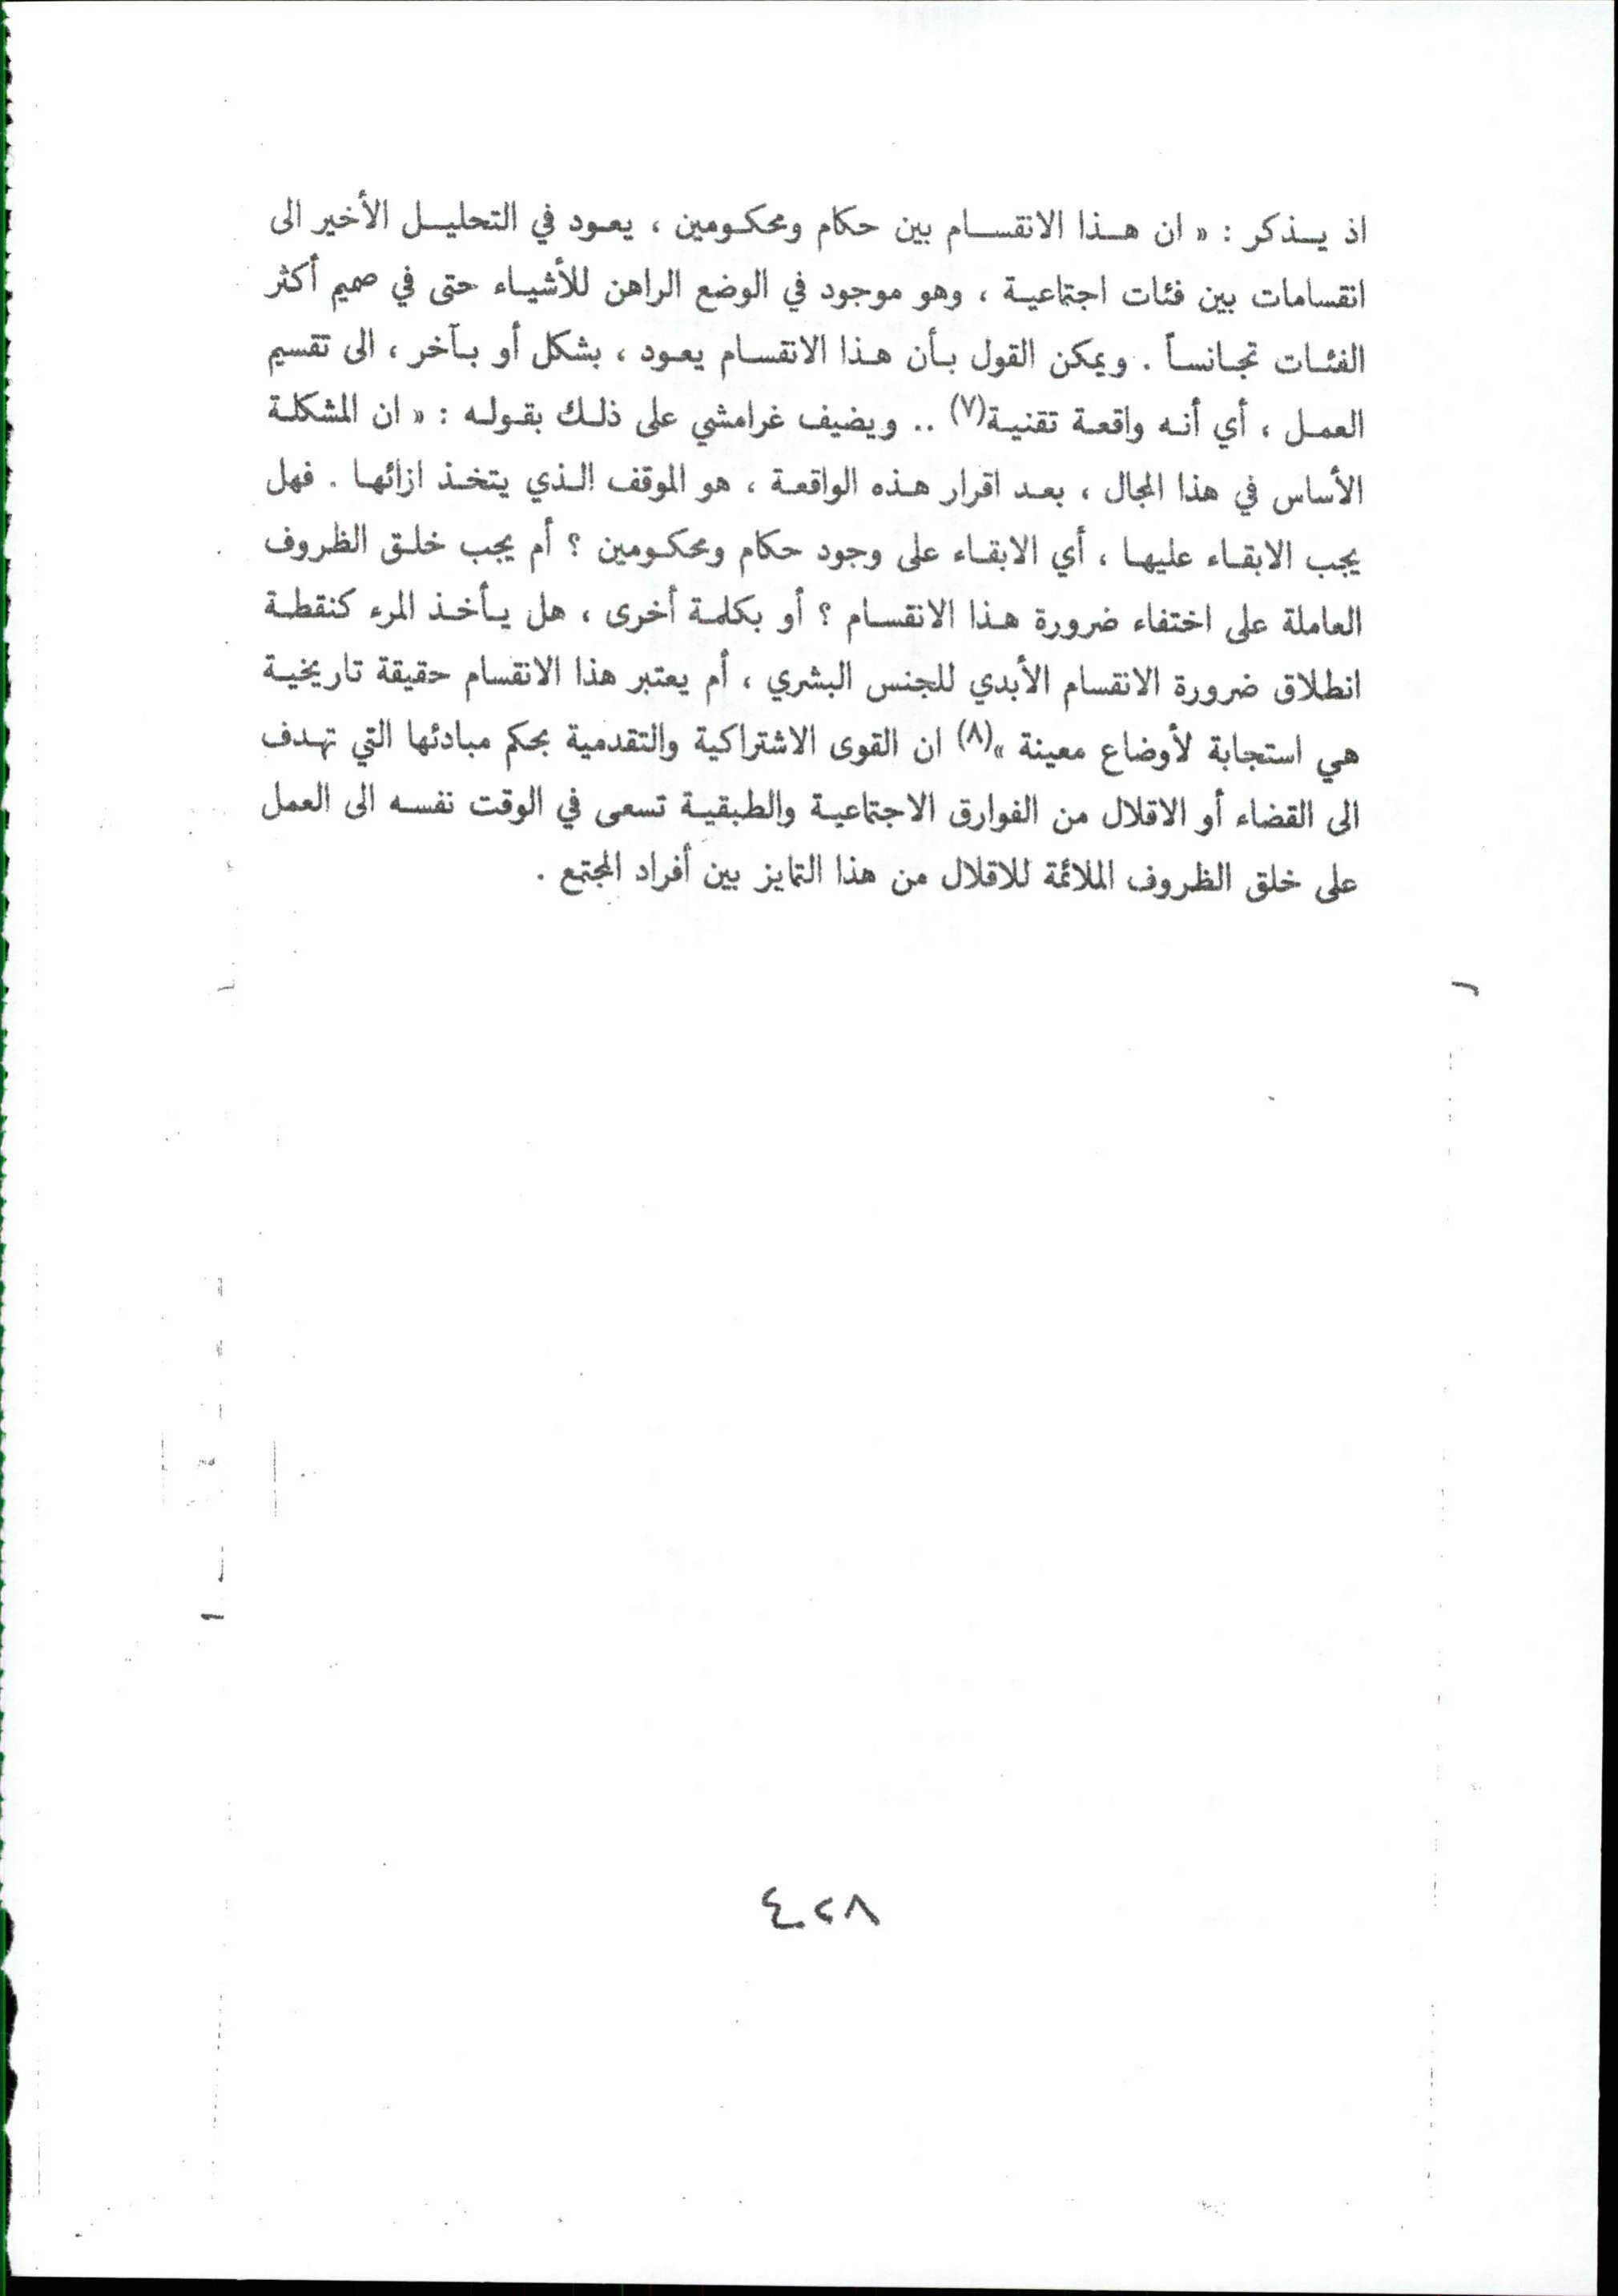 اذ يـذكر : « ان هـذا الانقسـام بين حكام ومحكـومين ، يعـود في التحليـل الأخير الى
انقسامات بين فئات اجتماعيـة ، وهو موجود في الوضع الراهن للأشيـاء حتى في صميم أكثر
الفئـات تجـانسـاً . ويمكن القول بـأن هـذا الانقسـام يعـود ، بشكل أو بـآخر ، الى تقسيم
العمـل ، أي أنـه واقعـة تقنيـة(٧) .. ويضيف غرامشي على ذلـك بقـولـه : « ان المشكلـة
الأساس في هذا المجال ، بعـد اقرار هـذه الواقعـة ، هو الموقف الـذي يتخـذ ازائهـا . فهل
يجب الابقـاء عليهـا ، أي الابقـاء على وجود حكام ومحكـومين ؟ أم يجب خلـق الظروف
العاملة على اختفاء ضرورة هـذا الانقسـام ؟ أو بكلمـة أخرى ، هل يـأخـذ المرء كنقطـة
انطلاق ضرورة الانقسام الأبدي للجنس البشري ، أم يعتبر هذا الانقسام حقيقة تاريخيـة
هي استجابة لأوضاع معينة »(٨) ان القوى الاشتراكية والتقدمية بحكم مبادئها التي تهـدف
الى القضاء أو الاقلال من الفوارق الاجتماعيـة والطبقيـة تسعى في الوقت نفسـه الى العمل
على خلق الظروف الملائمة للاقلال من هذا التمايز بين أفراد المجتمع .
٤٢٨